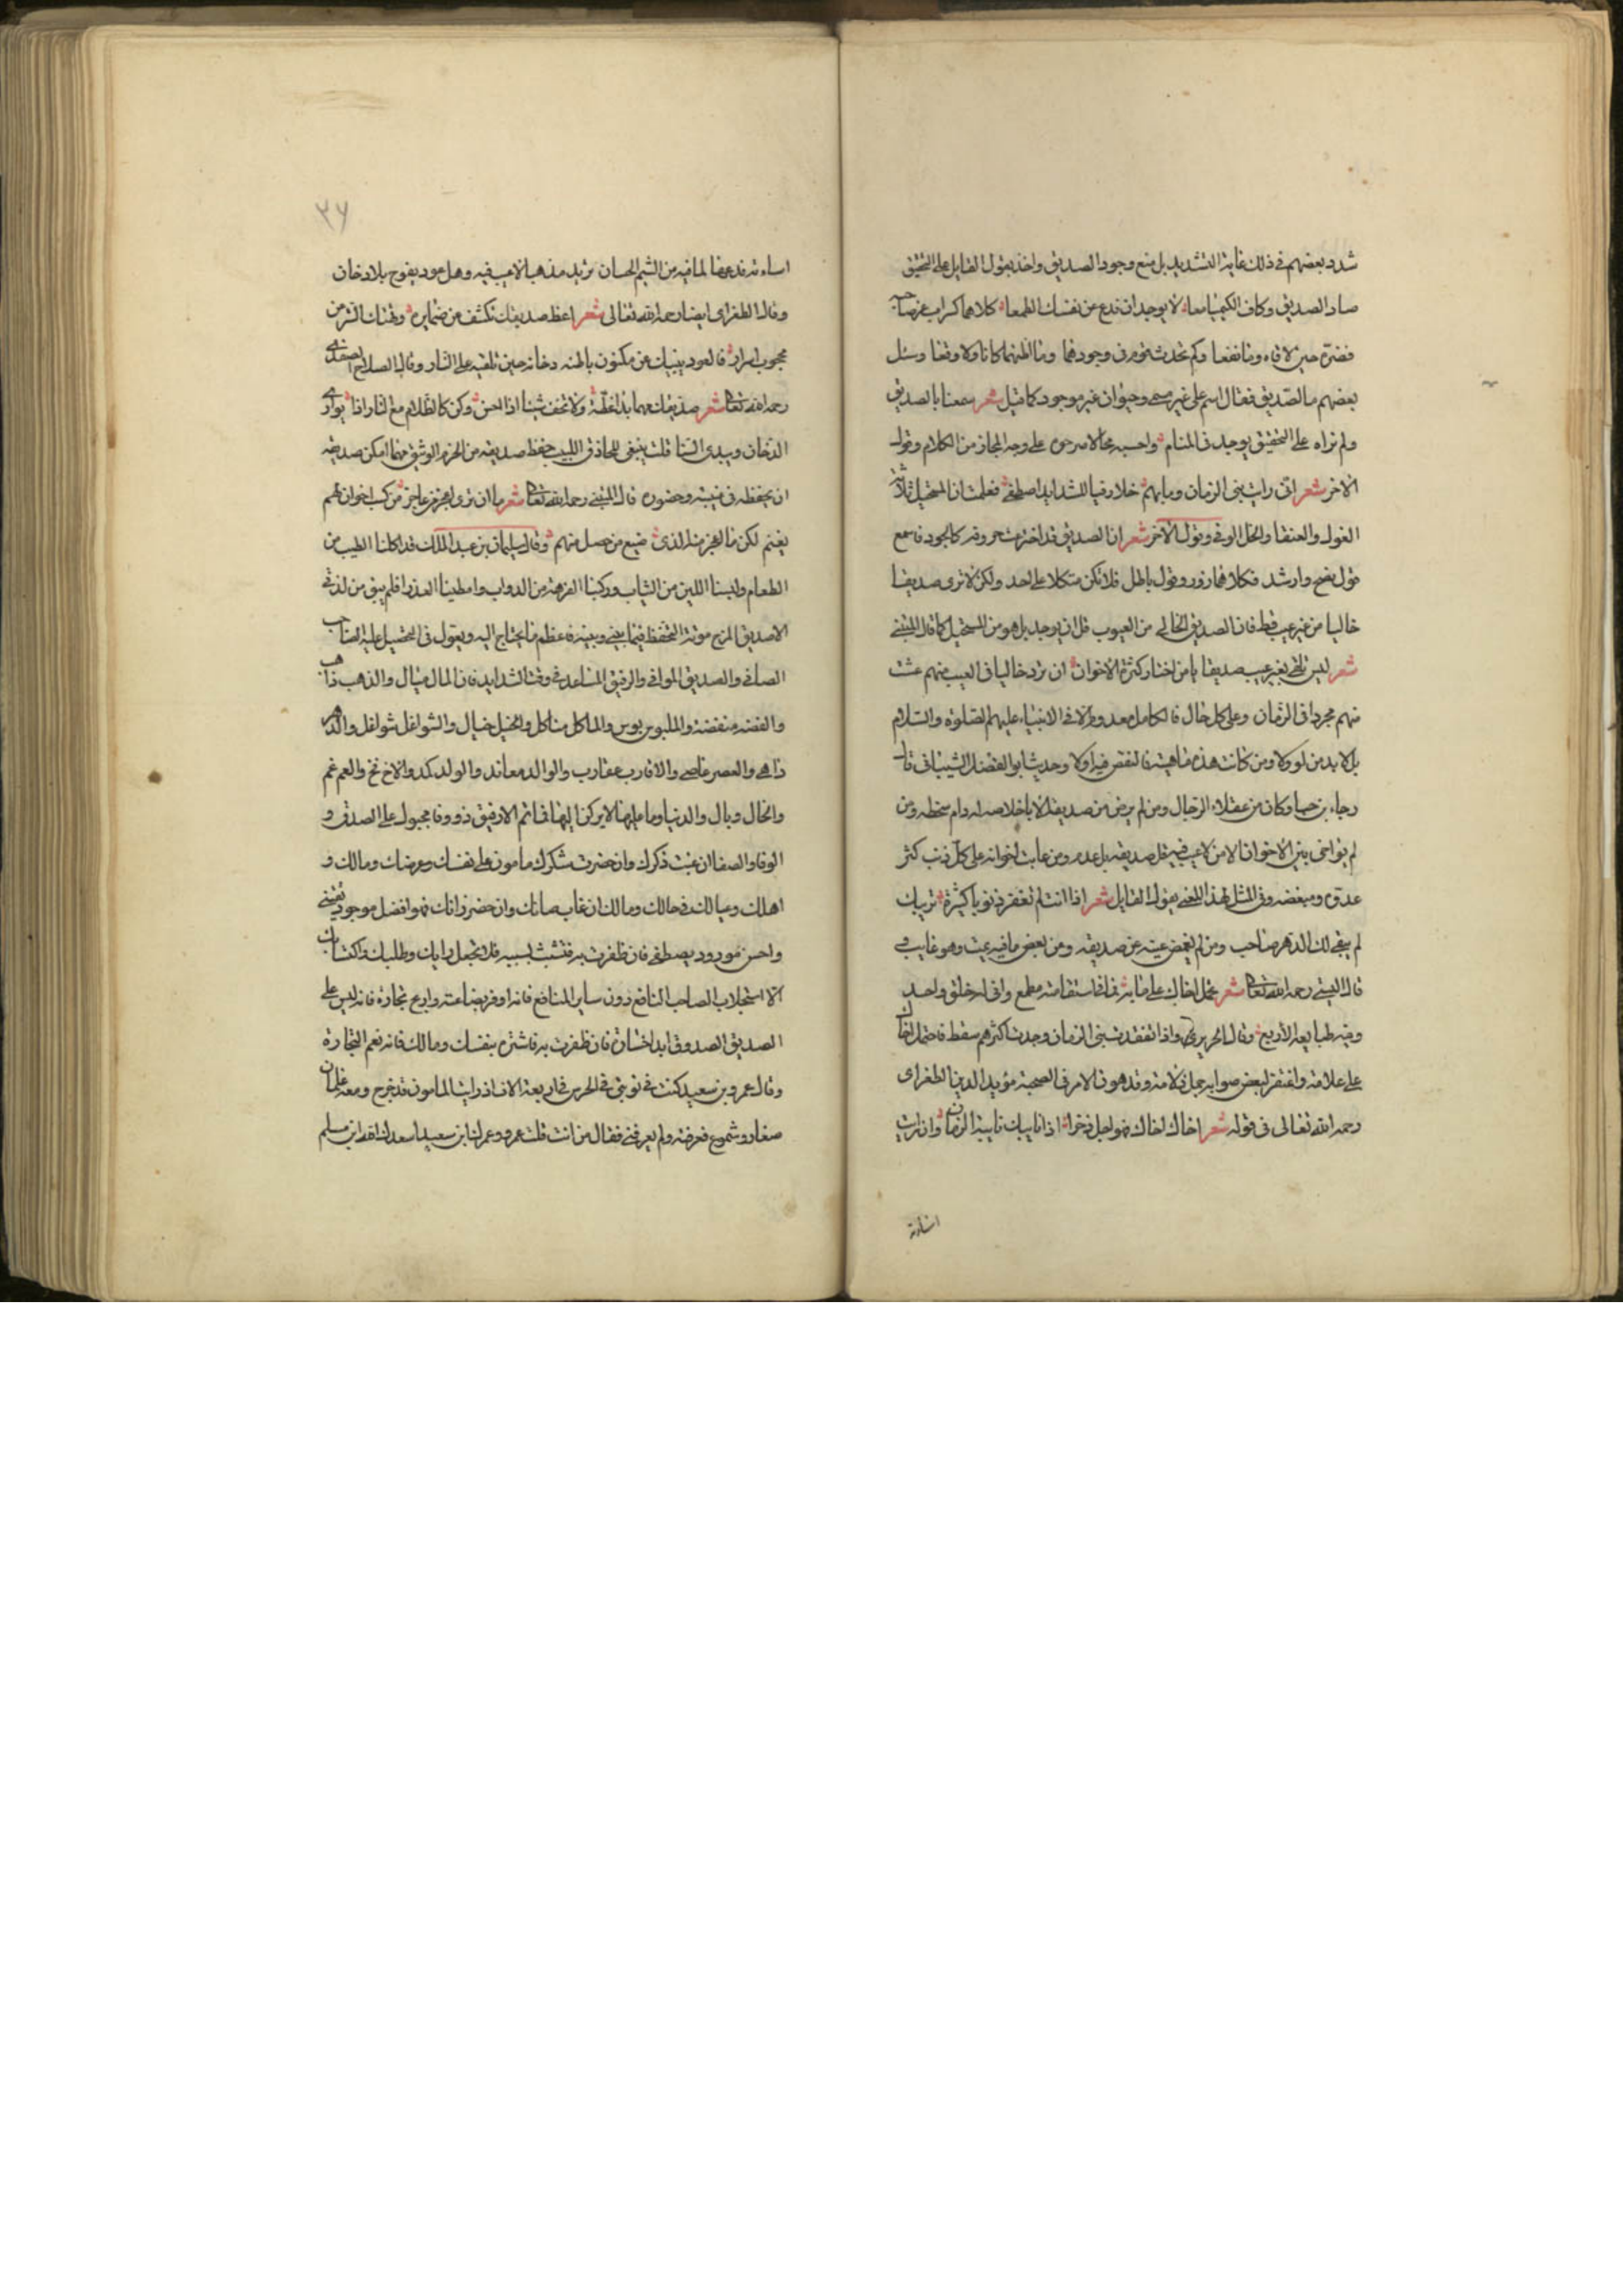 شدد بعضهم في ذلك غاية التشديد بل منع وجود الصديق واخذ بقول القايل على التحقيق
صاد الصديق وكاف الكيميا معا لا يوجدان فدع عن نفسك الطمعا كلاهما
وما نفعا وكم تحدث قوم في وجودهما وما اظنهما كانا ولا وقعا وسئل
بعضهم ما الصديق فقال اسم على غير مسمى وحيوان غير موجود كما قيل شعر سمعنا بالصديق
ولم نراه على التحقيق يوجد في المنام واحسبه محالا على وجه المجاز من الكلام وقول
الاخر شعر اني رايت بني الزمان وما بهم خلا وفيا للشدايد اصطفي فعلمت ان المستحيل ثلاثة
الغول والعنقا والخل الوفي وقول الاخر شعر ان الصديق قد اخترمت كالجود فاسمع
قول نصح وارشد فكلا هما زور وقول باطل فلا تكن متكلا على احد ولكن لا ترى صديقا
خاليا من غير عيب قط فان الصديق الخالي من العيوب قل ان يوجد بل هو من المستحيل كما قال
شعر ليس تلقى بغير عيب صديقا يا من اختار كثرة الاخوان ان ترد خاليا في العيب منهم عشت
منهم مجردا في الزمان وعلى كل حال فالكامل معدوم الا في الانبياء عليهم الصلوة والسلام
بل لا بد من لو ولا ومن كانت هذه ماهيته فالنقص فيه اولا وحدث ابو الفضل الشيباني قال
رجاء بن وكان من عقلاء الرجال ومن لم يرض من صديقه الا باخلاصه له دام سخطه ومن
لم يواخي بين الاخوان الا من لا عيب فيه قل صديقه بل عدم ومن عاتب اخوانه على كل ذنب كثر
عدوه ومبغضه وفي المثل لهذا المعنى يقول القايل شعر اذا انت لم تغفر ذنوبا كثيرة تريبك
لم يبقى لك الدهر صاحب ومن لم يغمض عينه عن صديقه وعن بعض ما فيه يمت وهو عاتب
قال البستي رحمه الله تعالى شعر تحمل اخاك على ما به فما في استقامته مطمع واني له خلق واحد
وفيه طبايعه الاربع وقال الحريري واذا تفقدت بني الزمان وجدت اكثرهم سقط فاحتمل اخاك
على علاته واغتفر لبعض صوابه وقد هون الامر في الصحبة مؤيد الدين الطغراى
رحمه الله تعالى في قوله شعر اخاك اخاك فهو اجل ذخرا اذا نابتك نايبة الزمان وان رابت
اساءته
اساءته فدعها لما فيه من الشيم الحسان تريد مهذبا لا عيب فيه وهل عود يفوح بلا دخان
وقال الطغراى ايضا رحمه الله تعالى شعر اعظ صديقك تكشف من ضمايره وتهتك الستر من
محجوب اسراره فالعود ينبيك عن مكنون باطنه دخانه حين تلقيه على النار وقال الصلاح الصفدي
رحمه الله تعالى شعر صديقك مهما ولا تخف شينا اذا احسن وكن كالظلام مع النار اذ يواري
الدخان ويبدي السنا قلت ينبغي للحاذق اللبيب حفظ صديقه من الحزم الوثيق مهما امكن صديقه
ان يحفظه في غيبته وحضوره قال رحمه الله تعالى شعر ما ان ترى من عاجز من كسب اخوان بهم
يغتم لكن ما اعجز منه الذي ضيع من حصل منهم وقال سليمان بن عبد الملك قد اكلنا الطيب من
الطعام ولبسنا اللين من الثياب وركبنا الفرهة من الدواب وامطينا العذرا فلم يبق من لذتي
الا صديق اطرح مونة التحفظ فيما بيني وبينه فاعظم ما يحتاج اليه ويعول في التحصيل عليه الصاحب
الصافي والصديق الموافي والرفيق المساعد في وقت الشدايد فان المال ميال والذهب ذاهب
والفضة منفضة والملبوس بوس والماكل متاكل والخيل خيال والشواغل شواغل والدهر
داهي والعصر عاصي والاقارب عقارب والوالد معاند والولد كمد والاخ فخ والعم غم
والخال وبال والدنيا وما عليها لا يركن اليها فما ثم الا رفيق ذو وفا مجبول على الصدق و
الوفا والصفا ان غبت ذكرك وان حضرت شكرك مامون على نفسك وعرضك ومالك و
اهلك وعيالك في حالك ومالك ان غاب صانك وان حضر زانك فهو افضل موجود يقتنى
واحسن مورود يصطفى فان ظفرت به فتشبث بسببه فلا تجعل دايك وطلبك واكتسابك
الا استجلاب الصاحب النافع دون ساير المنافع فانه اوفر بضاعته واربح تجارة فانه ليس على
الصديق الصدوق ابدا خسارة فان ظفرت به فاشتره بنفسك ومالك فانه نعم التجارة
وقال عمرو بن سعيد كنت في نوبتي في الحرس في اربعة الاف اذ رايت المامون قد خرج ومعه غلمان
صغار وشموع فعرفته ولم يعرفني فقال من انت قلت عمرو عمرك الله ابن سعيد اسعدك الله ابن مسلم
٣٦